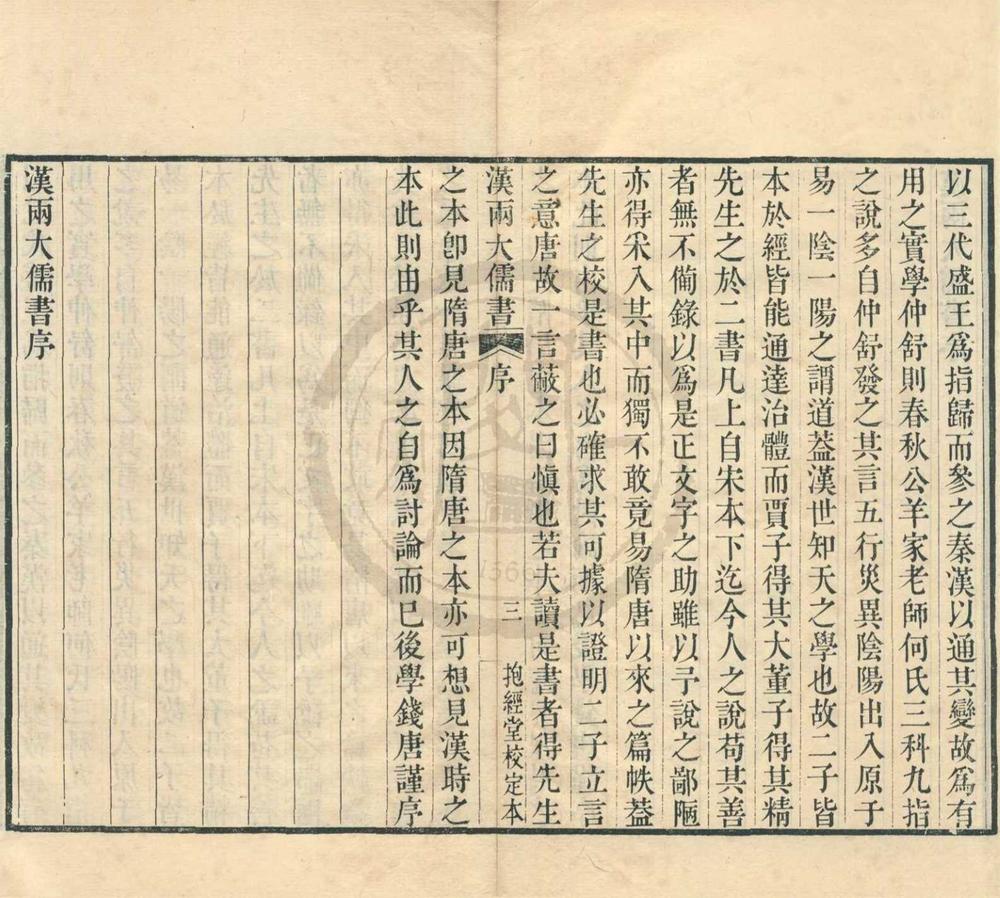 以三代盛王爲指歸而參之秦漢以通其變故爲有
用之實學仲舒則春秋公羊家老師何氏三科九指
之說多自仲舒發之其言五行災異陰陽出入原于
易一陰一陽之謂道葢漢世知天之學也故二子皆
本於經皆能通達治體而賈子得其大董子得其精
先生之於二書凡上自宋本下迄今人之說苟其善
者無不僃錄以爲是正文字之助雖以予說之鄙陋
亦得釆入其中而獨不敢竟易隋唐以來之篇帙葢
先生之校是書也必確求其可據以證明二子立言
之意唐故一言蔽之曰愼也若夫讀是書者得先生
漢兩大儒書 序 三 抱經堂校定本
之本卽見隋唐之本因隋唐之本亦可想見漢時之
本此則由乎其人之自爲討論而已後學錢唐謹序
漢兩大儒書序